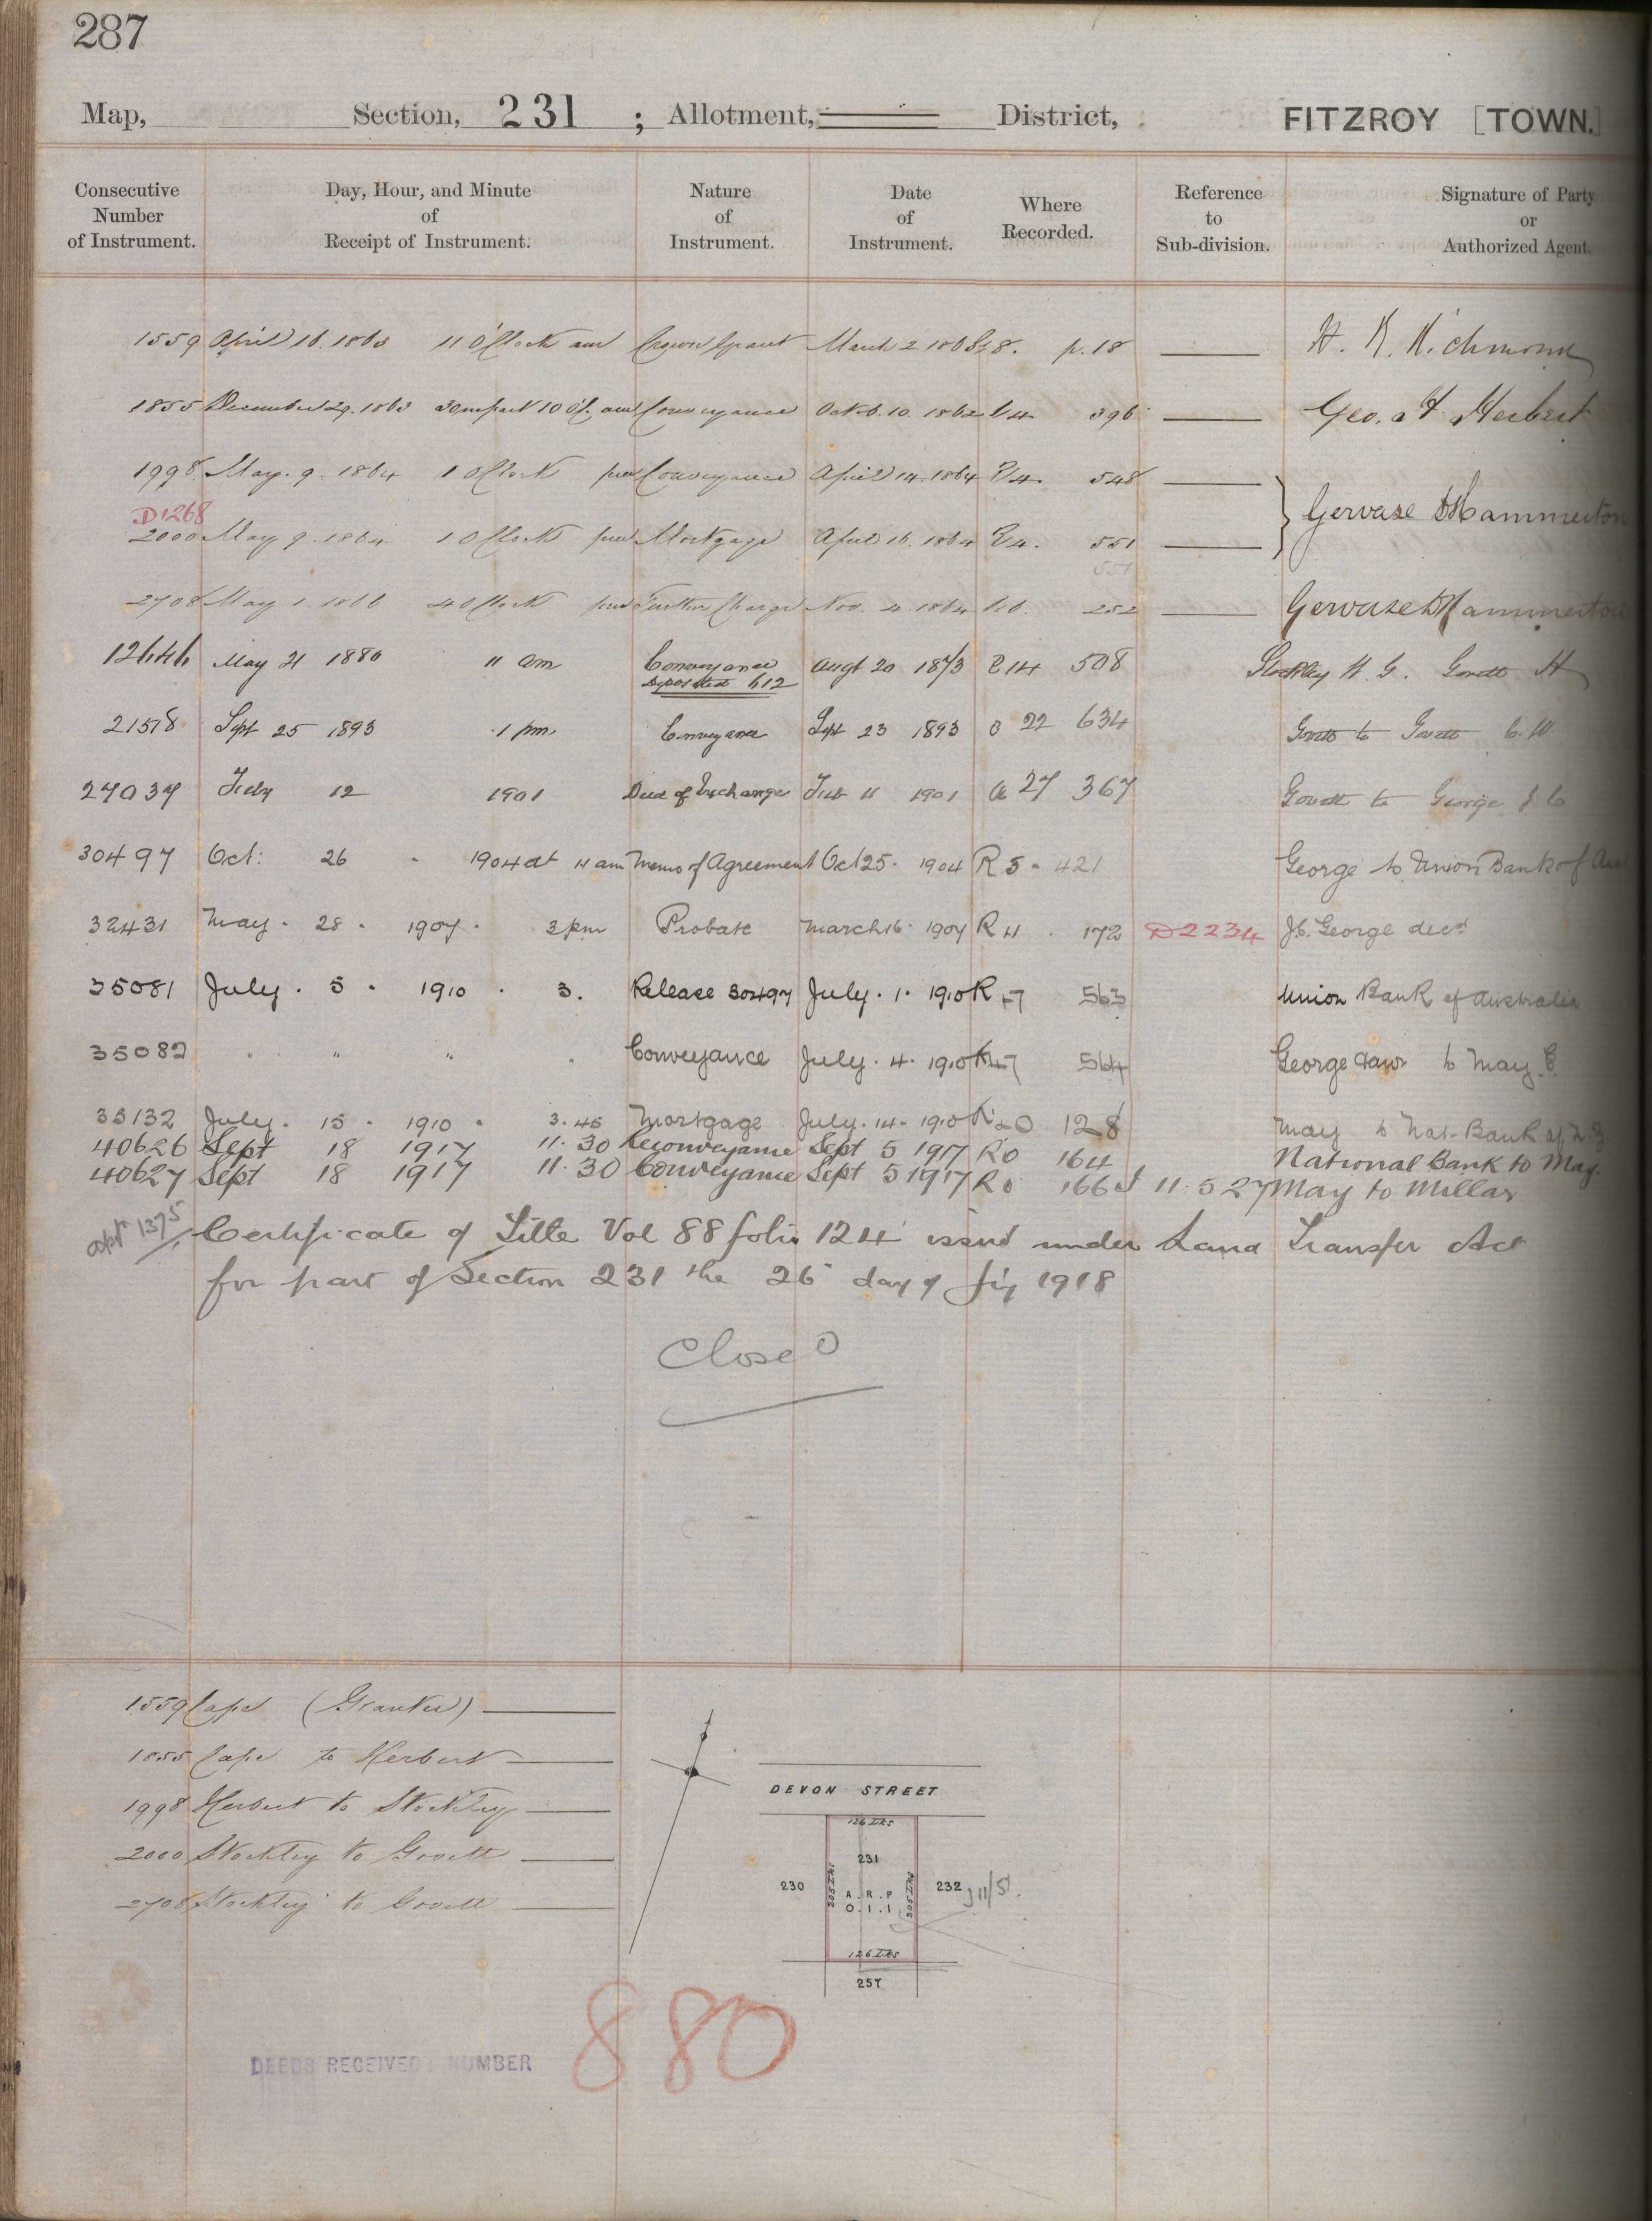 287
Map, Section, 231 ; Allotment, District, FITZROY [TOWN.]
Consecutive Number of Instrument. Day, Hour, and Minute of Receipt of Instrument. Nature of Instrument. Date of Instrument. Where Recorded. Reference to Sub-division. Signature of Party or Authorized Agent.
1559 April 16. 1863 11 O'Clock am Crown Grant March 2 1863 p. 18 H. R. Richmond
1855 December 29. 1863 30 m past 10 O'C. am Conveyance Octob. 10 1862 396 Geo. Herbert
1998 May. 9. 1864 1 O'Clock pm Conveyance April 14. 1864 548
D1268
2000 May 9. 1864 1 O'Clock pm Mortgage April 16. 1864 551 Gervase D Hammerton
551
2708 May 1. 1866 4 O'Clock pm Further Charge Nov. 4. 1864 252 Gervase D Hammerton
12646 May 21 1880 11 am Conveyance Augt 20 1873 E 14 508 Stockley W. G. Govett H
Deposited 612
21578 Sept 25 1893 1 pm. Conveyance Sept 23 1893 O 22 634 Govett to Govett C. W
27037 Feby 12 1901 Deed of Exchange Feb 11 1901 27 367 Govett to George J C
30497 Oct: 26 - 1904 at 11 am Memo of Agreement Oct 25. 1904 R 5 - 421 George to Union Bank of Aus
32431 May. 28. 1907. 3 pm Probate March 16. 1907 R 11 . 172 D2234 J.C. George decd
35081 July. 5. 1910. 3. Release 30497 July. 1. 1910 R 563 Union Bank of Australia
35082 " " " " Conveyance July. 4. 1910 564 George & anr to May. C
35132 July. 15. 1910. 3.45 Mortgage July. 14. 1910 R20 128 May to Nat. Bank of N.Z
40626 Sept 18 1917 11.30 Reconveyance Sept 5 1917 164 National Bank to May.
40627 Sept 18 1917 11.30 Conveyance Sept 5 1917 166 11.527 May to Millar
apt 1375
Certificate of Title Vol 88 folio 124 issued under Land Transfer Act
for part of Section 231 the 26 day of 1918
Closed
1559 Cape (Grantee)
1855 Cape to Herbert
1998 Herbert to Stockley
2000 Stockley to Govett
2708 Stockley to Govett
DEVON STREET
126 LKS
231
230 205 LKS A . R . P 205 LKS 232 J11/51.
0 . 1 . 1
126 LKS
257
880
DEEDS RECEIVED NUMBER